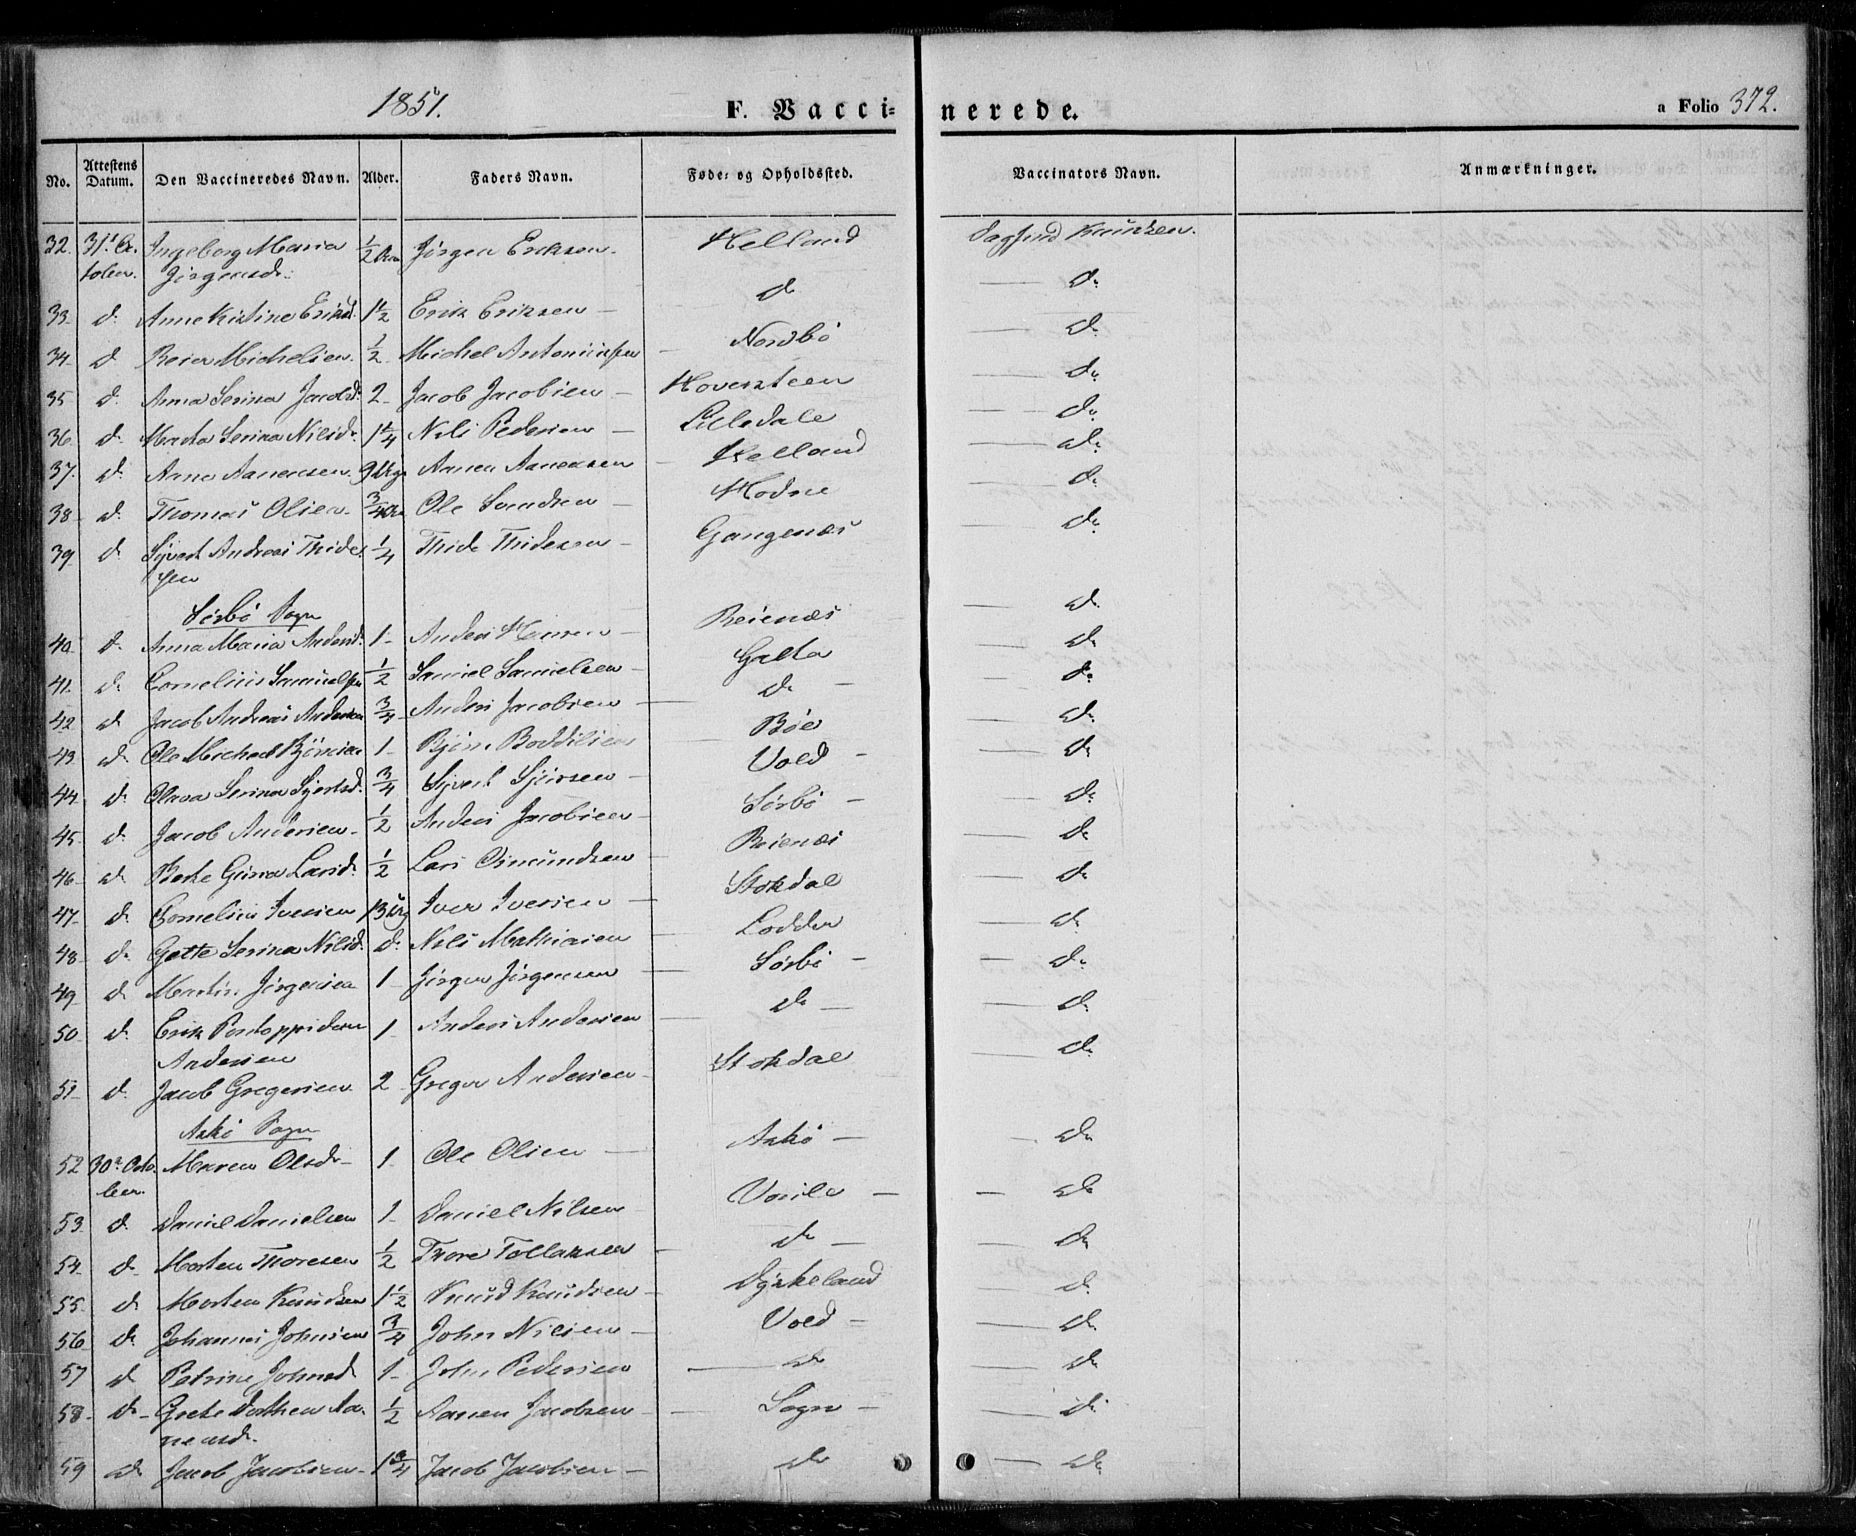 1851. F. Vacci= nerede. a Folio 372.
No. Attestens Datum. Den Vaccineredes Navn. Alder. Faders Navn. Føde= og Opholdssted. Vaccinators Navn. Anmærkninger.
32. 31t Oc- Ingeborg Maria 1/2 Jørgen Eriksen. Helland Knudsen.
tober Jørgensdr.
33. d. Anne Kistine Eriksd. 1 1/2 Erik Eriksen – d. d.
34. d. Reier Michelsen. 1/2 Michel Nordbö d.
35 d. Anna Serina Jacobsd. 2 Jacob Jacobsen – Hoversteen d.
36. d. Marta Serina Nilsd. 1 1/4 Nils Pedersen – Lilledale d.
37. d. Aanensen. 9 Aanen Aanensen – Helland d.
38. d. Thomas Olsen. 3/4 Ole Svendsen – Hodne d.
39. d. Sjvert Andreas Thides 1/4 Thide Thidesen – Gangenæs d.
sen
Sörbö Sogn
40. d. Anna Maria Andersd. 1 – Anders Hansen – Reienæs d.
41. d. Cornelius Samuelsen 1/2 Samuel Samuelsen – Galta d.
42 d. Jacob Andreas Andersen 3/4 Anders Jacobsen – d. – d.
43. d. Ole Michael Björnsen 1 – Björn Boddilsen Böe d.
44. d. Olava Serina Sjvertsd. 3/4 Sjvert Sjursen – Vold – d.
45. d. Jacob Andersen – 1/2 Anders Jacobsen – Sörbö – d.
46. d. Berte Gurina Larsd. 1/2 Lars Osmundsen – Reienæs d.
47. d. Cornelius Iversen 13 Ug Iver Iversen – Stokdal d.
48. d. Gette Serina Nilsd. d. Nils Mathiasen – Lodden d.
49. d. Martin Jörgensen 1 – Jörgen Jörgensen – Sörbö – d.
50 d. Erik Pontoppidan 1 – Anders Andersen – d. – d.
Andersen
51. d. Jacob Gregersen 2 Greger Andersen – Stokdal d.
Askö Sogn
52 30te Octo- Maren Olsdr – 1 – Ole Olsen – Askö – d.
ber.
53. d. Daniel Danielsen 1 – Daniel Nilsen – d.
54. d. Morten Thoresen 1/2 Thore Tollaksen – d. – d.
55. d. Morten Knudsen 1 1/2 Knud Knudsen – Dyskeland d.
56 d. Johannes Johnsen 3/4 John Nilsen – Vold – d.
57 d. Petrine Johnsd. 1 – John Pedersen – d. d.
58 – d – Grete Dorthea Aa- 1/2 Aanen Jacobsen – Sogn – d.
nensd.
59 d. Jacob Jacobsen – 1 3/4 Jacob Jacobsen – d. d.